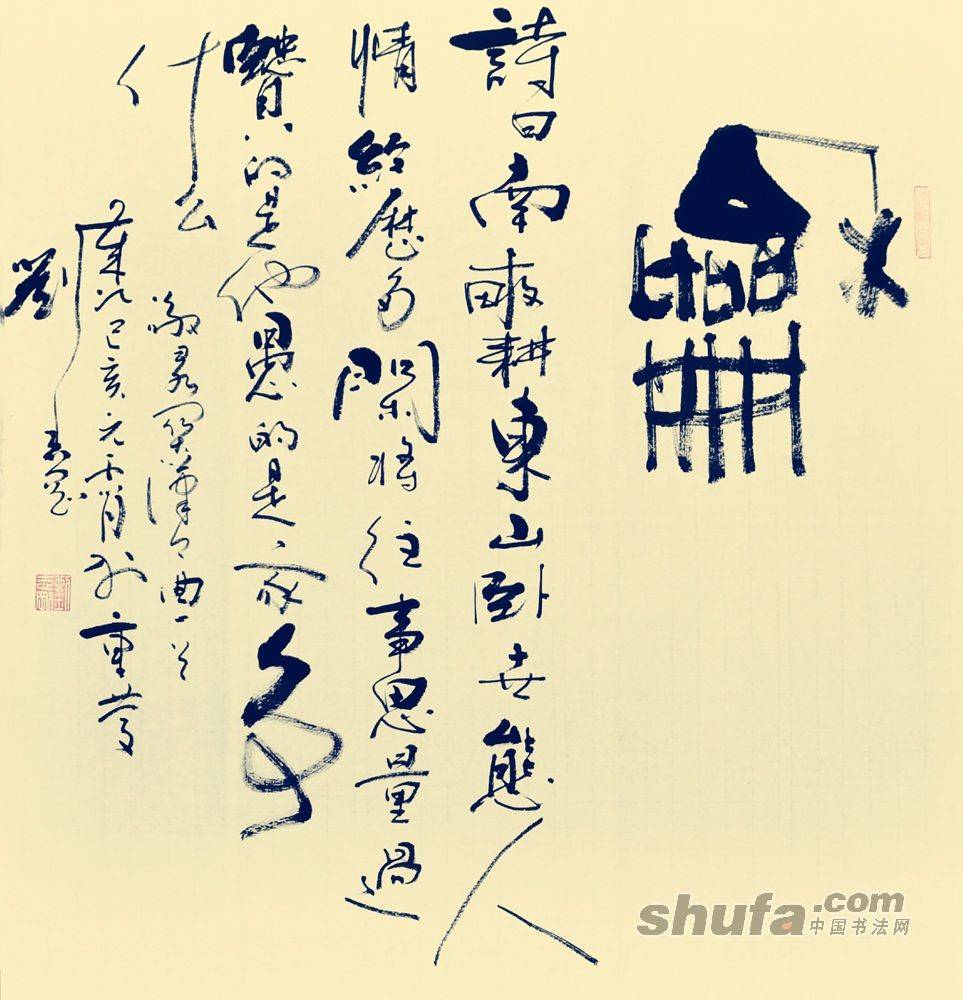 詩曰南畝耕東山卧世態人
情經歷多閑將往事思量過
賢的是他愚的是我爭
什么
漢卿曲一首
歲次己亥元宵於重慶
劉
shufa.com
中国书法网